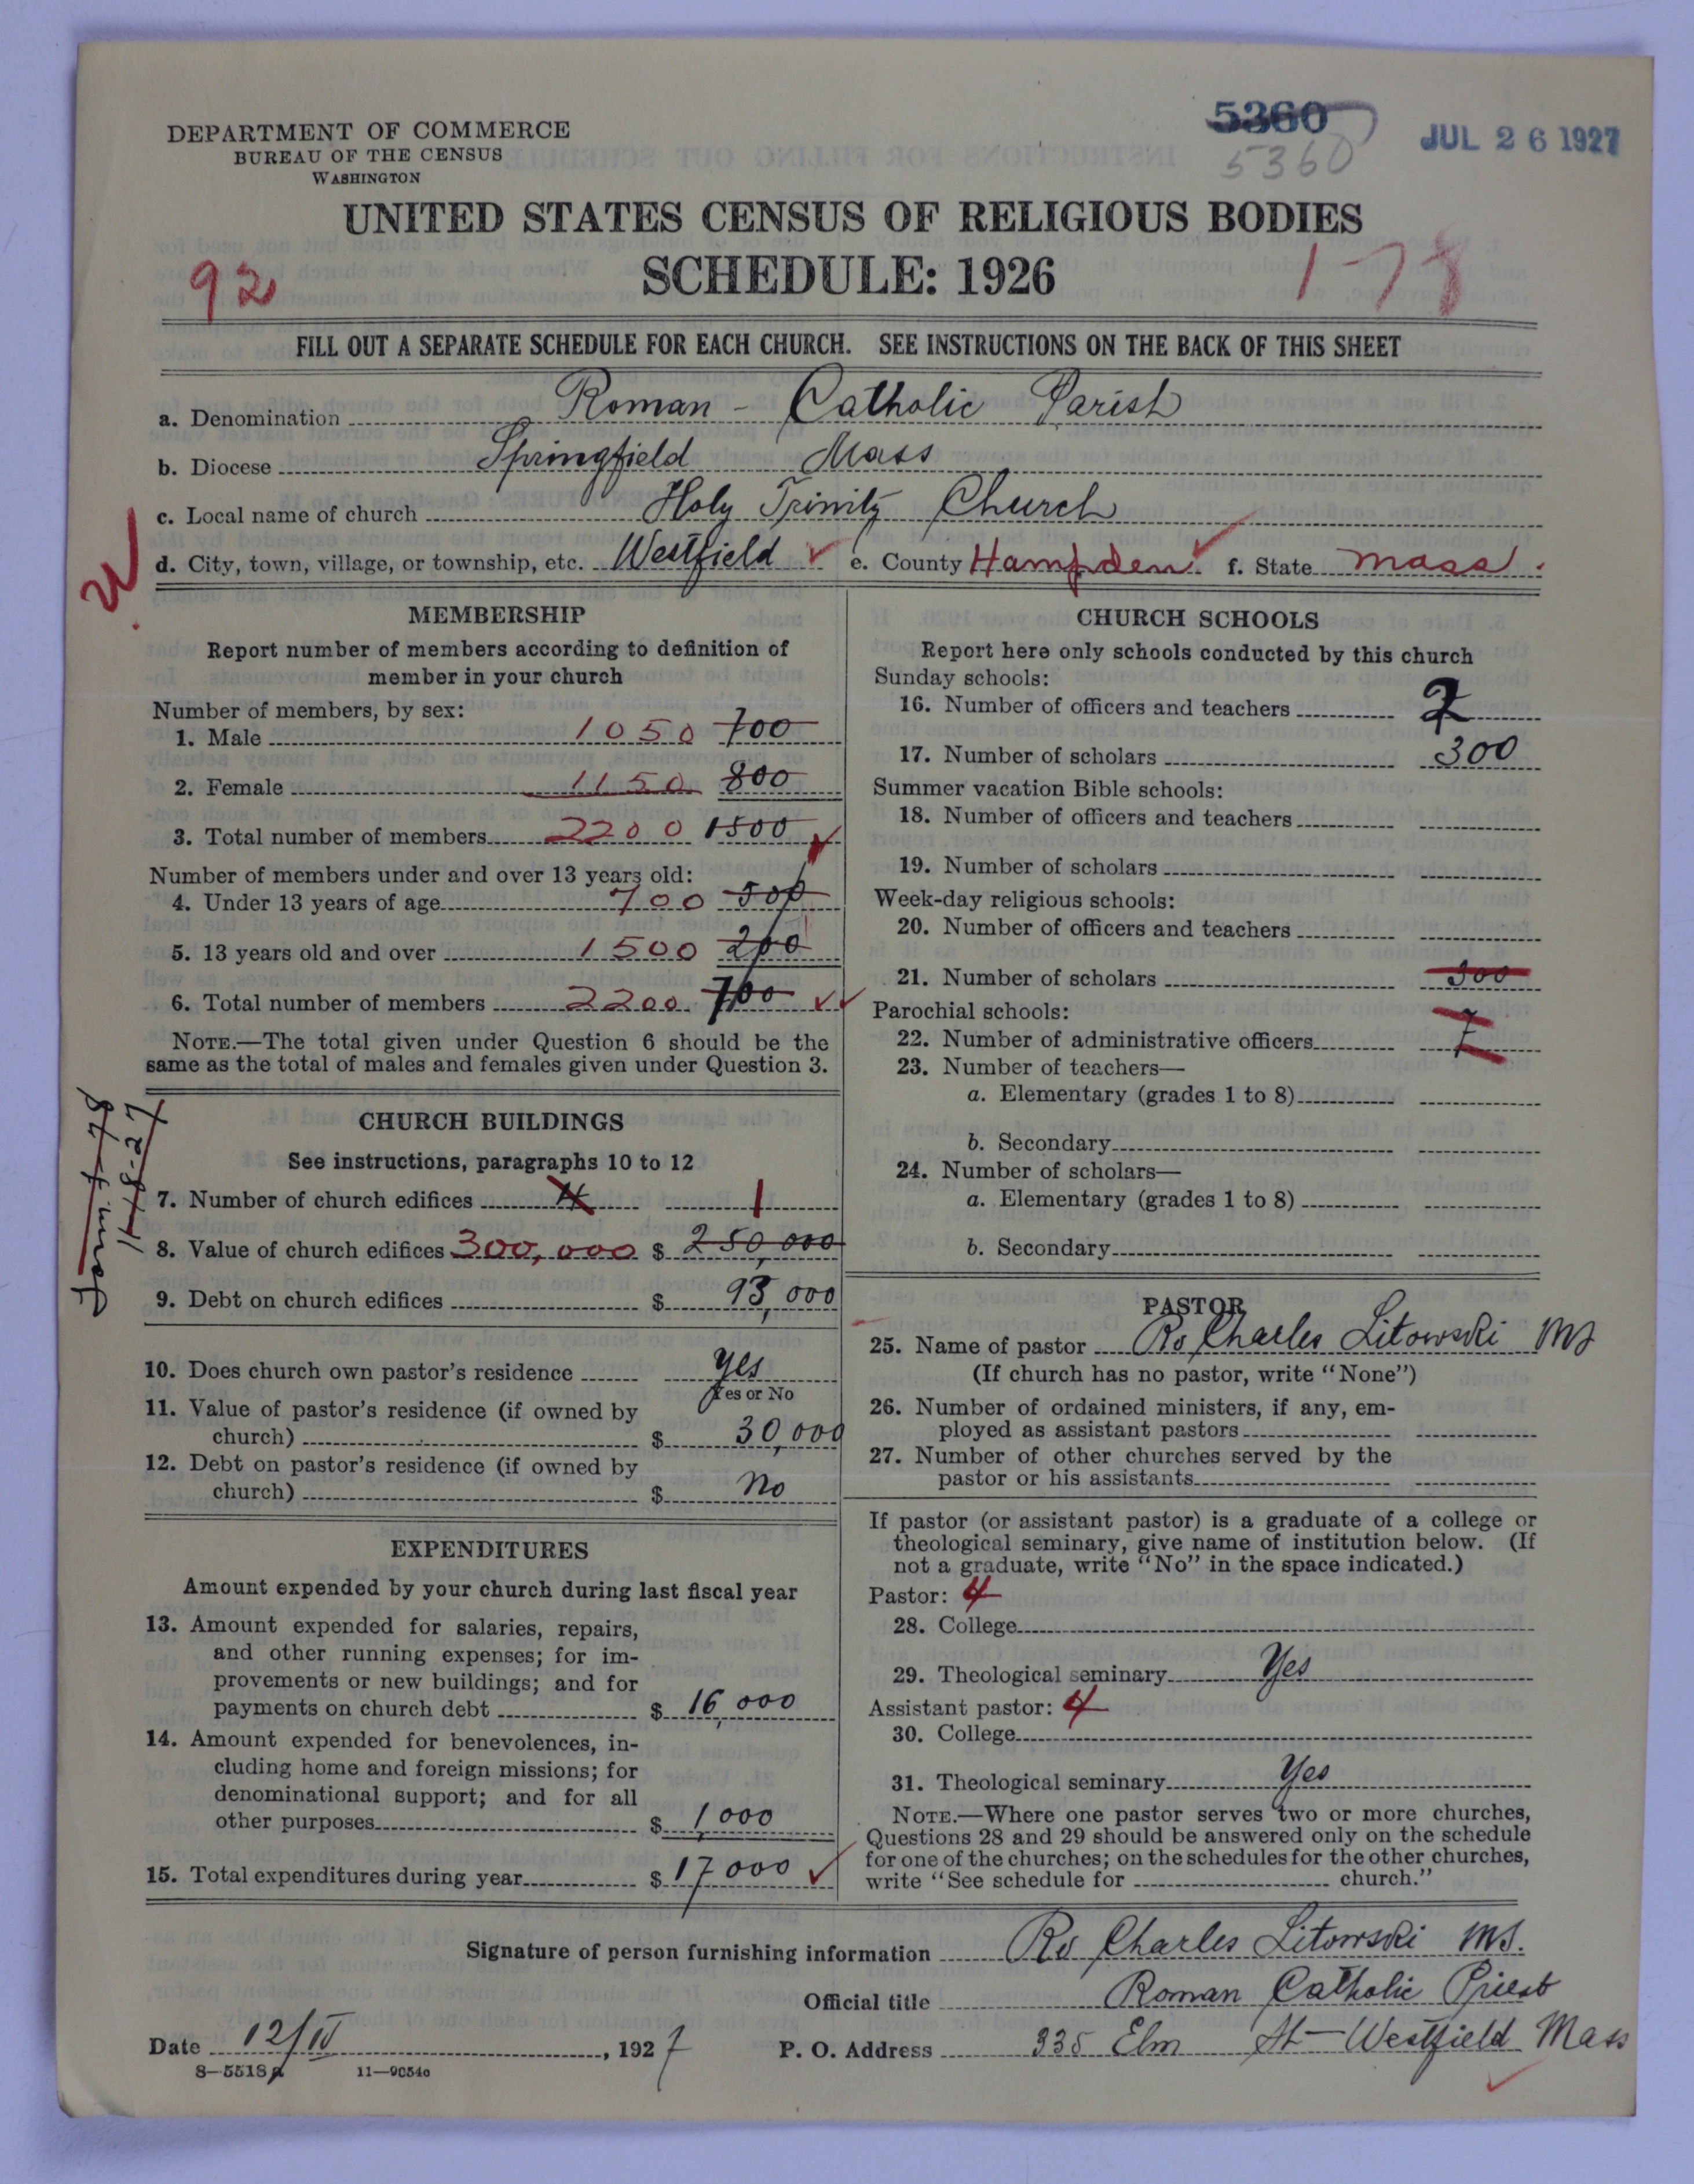 DEPARTMENT OF COMMERCE
BUREAU OF THE CENSUS
WASHINGTON
5360
5360
JUL 26 1927
UNITED STATES CENSUS OF RELIGIOUS BODIES
SCHEDULE: 1926
92
178
FILL OUT A SEPARATE SCHEDULE FOR EACH CHURCH. SEE INSTRUCTIONS ON THE BACK OF THIS SHEET
a. Denomination Roman - Catholic Parish
b. Diocese Springfield Mass
c. Local name of church Holy Trinity Church
d. City, town, village, or township, etc. Westfield e. County Hampden f. State Mass.
MEMBERSHIP
Report number of members according to definition of
member in your church
Number of members, by sex:
1. Male 1050 700
2. Female 1150 800
3. Total number of members 2200 1500
Number of members under and over 13 years old:
4. Under 13 years of age 700 500
5. 13 years old and over 1500 200
6. Total number of members 2200 700
NOTE.—The total given under Question 6 should be the
same as the total of males and females given under Question 3.
CHURCH BUILDINGS
See instructions, paragraphs 10 to 12
7. Number of church edifices 4 1
8. Value of church edifices 300,000 $ 250,000
9. Debt on church edifices $ 93,000
10. Does church own pastor's residence yes
Yes or No
11. Value of pastor's residence (if owned by
church) $ 30,000
12. Debt on pastor's residence (if owned by
church) $ No
11-18-27
EXPENDITURES
Amount expended by your church during last fiscal year
13. Amount expended for salaries, repairs,
and other running expenses; for im-
provements or new buildings; and for
payments on church debt $ 16,000
14. Amount expended for benevolences, in-
cluding home and foreign missions; for
denominational support; and for all
other purposes $ 1,000
15. Total expenditures during year $ 17000
CHURCH SCHOOLS
Report here only schools conducted by this church
Sunday schools:
16. Number of officers and teachers 7
17. Number of scholars 300
Summer vacation Bible schools:
18. Number of officers and teachers
19. Number of scholars
Week-day religious schools:
20. Number of officers and teachers
21. Number of scholars 300
Parochial schools:
22. Number of administrative officers 7
23. Number of teachers—
a. Elementary (grades 1 to 8)
b. Secondary
24. Number of scholars—
a. Elementary (grades 1 to 8)
b. Secondary
PASTOR
25. Name of pastor Charles Litowski MS
(If church has no pastor, write "None")
26. Number of ordained ministers, if any, em-
ployed as assistant pastors
27. Number of other churches served by the
pastor or his assistants
If pastor (or assistant pastor) is a graduate of a college or
theological seminary, give name of institution below. (If
not a graduate, write "No" in the space indicated.)
Pastor: 4
28. College
29. Theological seminary Yes
Assistant pastor: 4
30. College
31. Theological seminary Yes
NOTE.—Where one pastor serves two or more churches,
Questions 28 and 29 should be answered only on the schedule
for one of the churches; on the schedules for the other churches,
write "See schedule for church."
Signature of person furnishing information Charles Litowski MS.
Official title Roman Catholic Priest
Date 12/IV, 1927 P. O. Address 335 Elm St — Westfield Mass
8—5518a 11—9054a